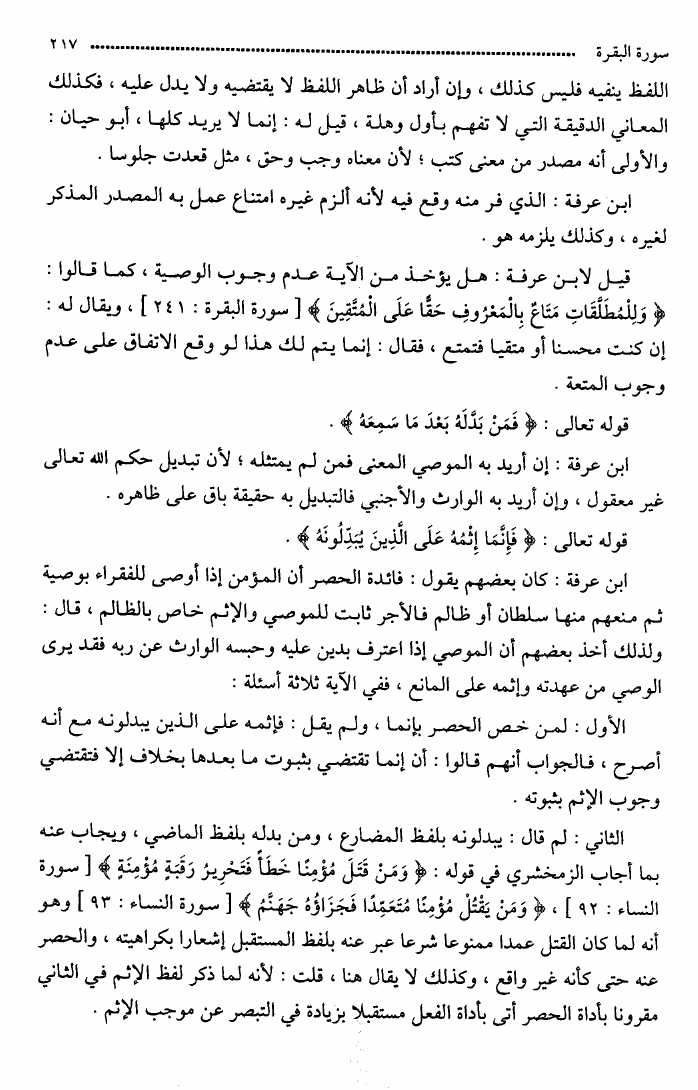 سورة البقرة ................................................ ٢١٧
اللفظ ينفيه فليس كذلك ، وإن أراد أن ظاهر اللفظ لا يقتضيه ولا يدل عليه ، فكذلك
المعاني الدقيقة التي لا تفهم بأول وهلة ، قيل له : إنما لا يريد كلها ، أبو حيان :
والأولى أنه مصدر من معنى كتب ؛ لأن معناه وجب وحق ، مثل قعدت جلوسا .
ابن عرفة : الذي فر منه وقع فيه لأنه ألزم غيره امتناع عمل به المصدر المذكر
لغيره ، وكذلك يلزمه هو .
قيل لابن عرفة : هل يؤخذ من الآية عدم وجوب الوصية ، كما قالوا :
﴿ وَلِلْمُطَلَّقَاتِ مَتَاعٌ بِالْمَعْرُوفِ حَقًّا عَلَى الْمُتَّقِينَ ﴾ [ سورة البقرة : ٢٤١ ] ، ويقال له :
إن كنت محسنا أو متقيا فتمتع ، فقال : إنما يتم لك هذا لو وقع الاتفاق على عدم
وجوب المتعة .
قوله تعالى : ﴿ فَمَنْ بَدَّلَهُ بَعْدَ مَا سَمِعَهُ ﴾ .
ابن عرفة : إن أريد به الموصي المعنى فمن لم يمتثله ؛ لأن تبديل حكم الله تعالى
غير معقول ، وإن أريد به الوارث والأجنبي فالتبديل به حقيقة باق على ظاهره .
قوله تعالى : ﴿ فَإِنَّمَا إِثْمُهُ عَلَى الَّذِينَ يُبَدِّلُونَهُ ﴾ .
ابن عرفة : كان بعضهم يقول : فائدة الحصر أن المؤمن إذا أوصى للفقراء بوصية
ثم منعهم منها سلطان أو ظالم فالأجر ثابت للموصي والإثم خاص بالظالم ، قال :
ولذلك أخذ بعضهم أن الموصي إذا اعترف بدين عليه وحبسه الوارث عن ربه فقد يرى
الوصي من عهدته وإثمه على المانع ، ففي الآية ثلاثة أسئلة :
الأول : لمن خص الحصر بإنما ، ولم يقل : فإثمه على الذين يبدلونه مع أنه
أصرح ، فالجواب أنهم قالوا : أن إنما تقتضي بثبوت ما بعدها بخلاف إلا فتقتضي
وجوب الإثم بثبوته .
الثاني : لم قال : يبدلونه بلفظ المضارع ، ومن بدله بلفظ الماضي ، ويجاب عنه
بما أجاب الزمخشري في قوله : ﴿ وَمَنْ قَتَلَ مُؤْمِنًا خَطَأً فَتَحْرِيرُ رَقَبَةٍ مُؤْمِنَةٍ ﴾ [ سورة
النساء : ٩٢ ] ، ﴿ وَمَنْ يَقْتُلْ مُؤْمِنًا مُتَعَمِّدًا فَجَزَاؤُهُ جَهَنَّمُ ﴾ [ سورة النساء : ٩٣ ] وهو
أنه لما كان القتل عمدا ممنوعا شرعا عبر عنه بلفظ المستقبل إشعارا بكراهيته ، والحصر
عنه حتى كأنه غير واقع ، وكذلك لا يقال هنا ، قلت : لأنه لما ذكر لفظ الإثم في الثاني
مقرونا بأداة الحصر أتى بأداة الفعل مستقبلا بزيادة في التبصر عن موجب الإثم .